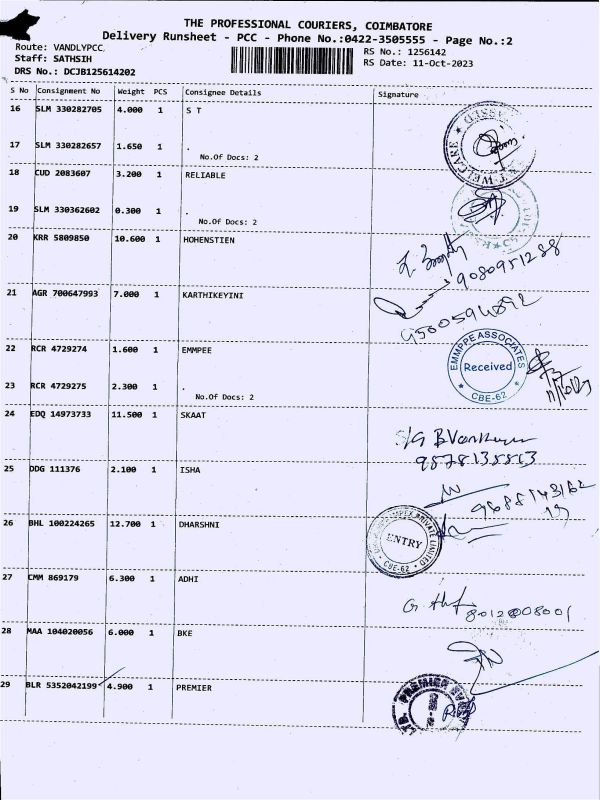 THE PROFESSIONAL COURIERS, COIMBATORE
Delivery Runsheet - PCC - Phone No.:0422-3505555 - Page No.:2
Route: VANDLYPCC
Staff: SATHSIH
DRS No.: DCJB125614202
RS No.: 1256142
RS Date: 11-Oct-2023
S No Consignment No Weight PCS Consignee Details Signature
16 SLM 330282705 4.000 1 S T
17 SLM 330282657 1.650 1 .
No.Of Docs: 2
18 CUD 2083607 3.200 1 RELIABLE
19 SLM 330362602 0.300 1 .
No.Of Docs: 2
20 KRR 5809850 10.600 1 HOHENSTIEN
9080951288
21 AGR 700647993 7.000 1 KARTHIKEYINI
9500594892
22 RCR 4729274 1.600 1 EMMPEE
EMMPPE ASSOCIATES
Received
CBE-62
23 RCR 4729275 2.300 1 .
No.Of Docs: 2
24 EDQ 14973733 11.500 1 SKAAT
9578135513
25 DDG 111376 2.100 1 ISHA
26 BHL 100224265 12.700 1 DHARSHNI
PRIVATE LIMITED
ENTRY
CBE-62
27 CMM 869179 6.300 1 ADHI
8012008001
28 MAA 104020056 6.000 1 BKE
29 BLR 5352042199 4.900 1 PREMIER
PREMIER